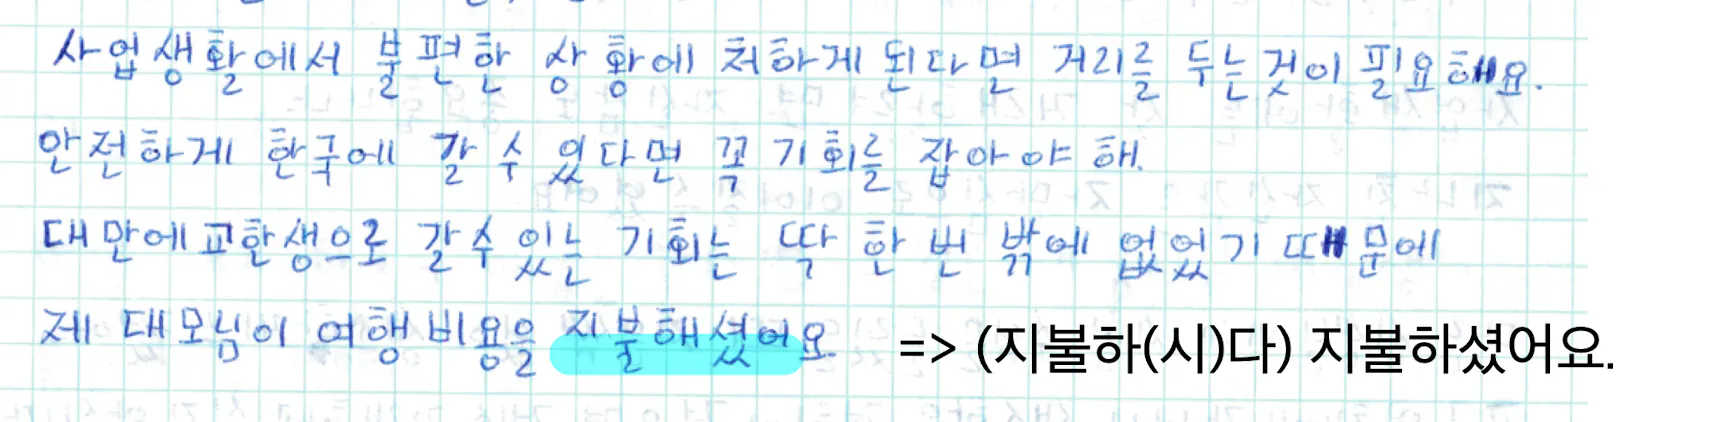 사업생활에서 불편한 상황에 처하게 된다면 거리를 두는것이 필요해요.
안전하게 한국에 갈 수 있다면 꼭 기회를 잡아야 해.
대만에 교환생으로 갈수있는 기회는 딱 한 번 밖에 없었기 때문에
제 대모님이 여행비용을 지불해셨어요. => (지불하(시)다) 지불하셨어요.